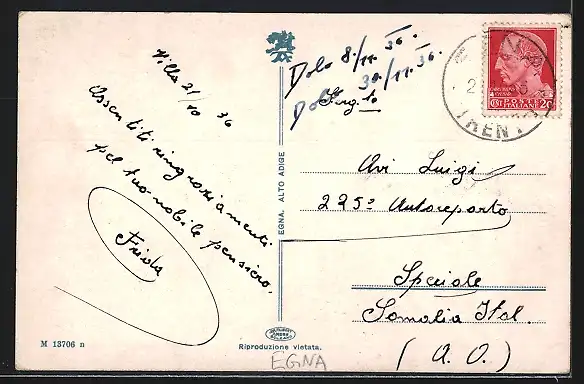 Villa 21/10 36
Assentiti ringraziamenti
pel tuo nobile pensiero.
Frida
Dolo 8./11. 36.
Dolo 30/11. 36.
Serg.
Avi Luigi
225º Autoreparto
Speciale
Somalia Ital.
(A. O.)
EGNA. ALTO ADIGE
POSTE
ITALIANE
TRENTO
M 13706 n
Riproduzione vietata.
EGNA